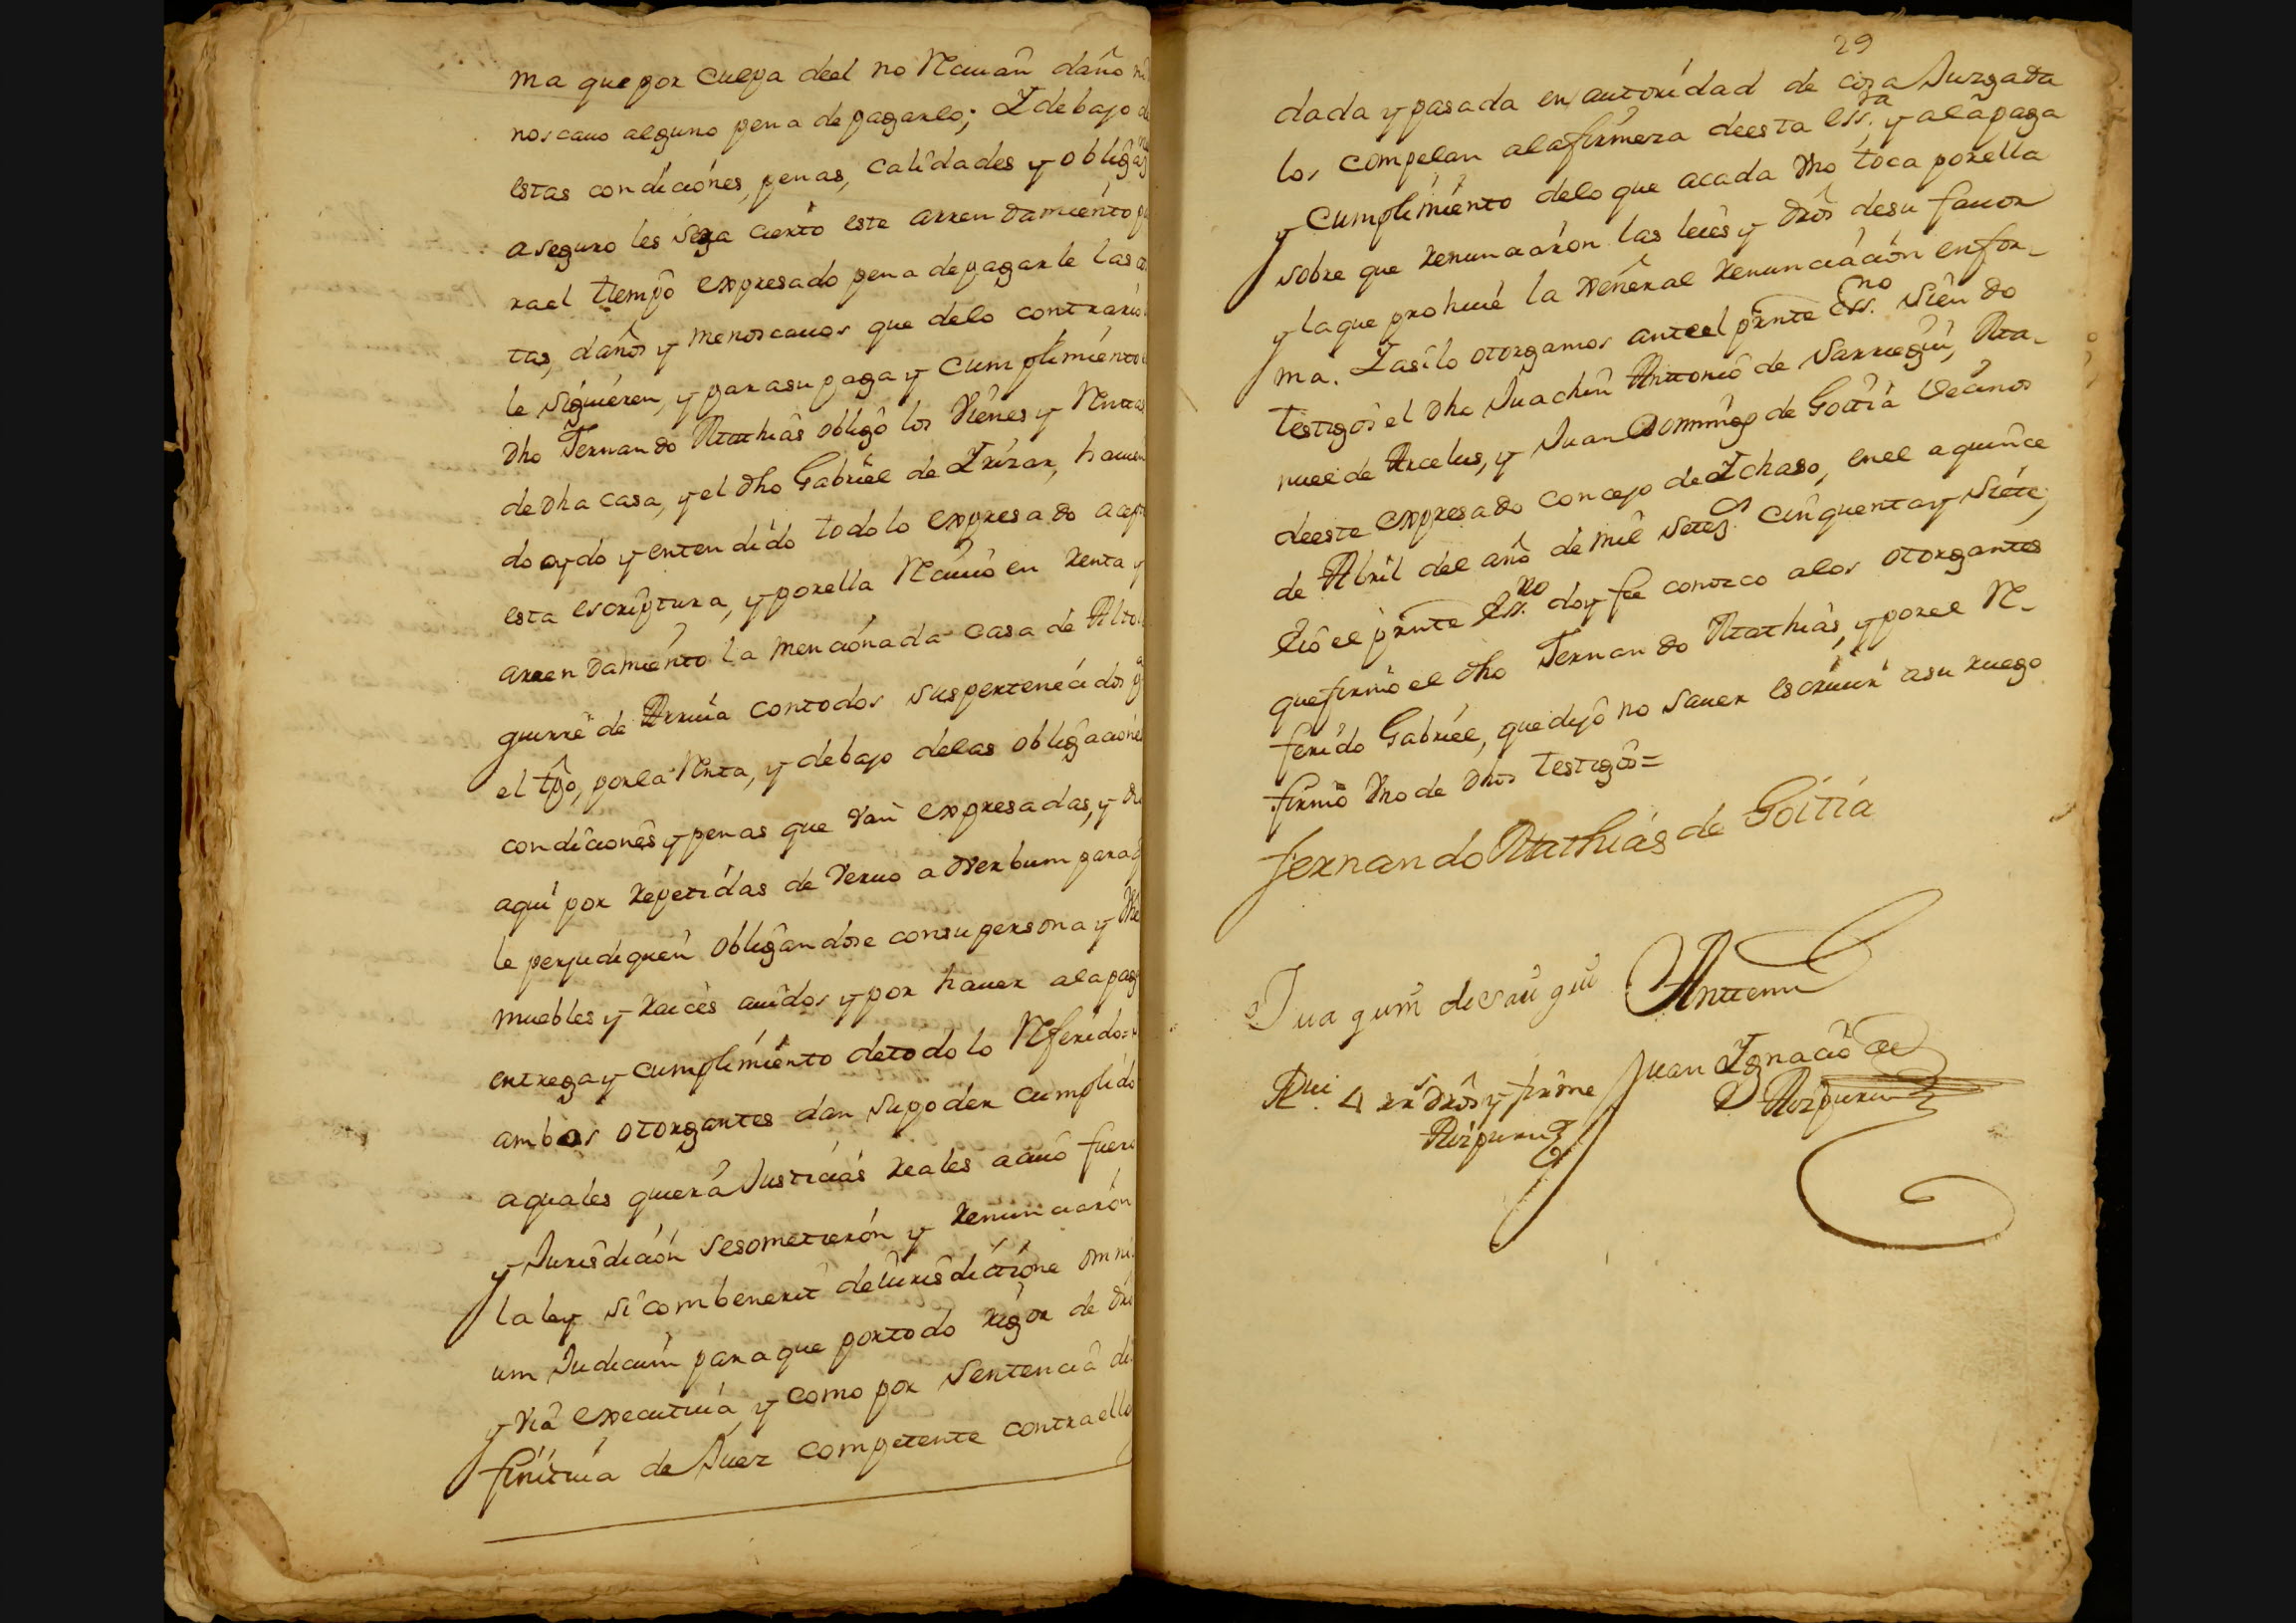 ma que por culpa deel no Reciuan daño ni
noscauo alguno pena de pagarlo; Y debajo de
estas condiciones, penas, calidades y obligaz
aseguro les sera cierto este arrendamiento pa
ra el tiempo expresado pena de pagarle las cos
tas, daños y menoscauos que delo contrario
le siguieren, y para su paga y cumplimiento
dho Fernando Mathias obligò los Vienes y Rentas
de dha casa, y el dho Gabriel de Yrizar, hauien
do oydo y entendido todo lo expresado acepto
esta escriptura, y por ella Reciuiò en renta y
arrendamiento la mencionada casa de Alto
guirre de Arruia con todos sus pertenecidos
el tpo, por la Renta, y debajo de las obligaciones
condiciones y penas que van expresadas, y
aqui por repetidas de Veruo ad Verbum para q
le perjudiquen obligandose con su persona y Vie
muebles y raices auidos y por hauer a la paga
entrega y cumplimiento de todo lo Referido=
ambos otorgantes dan su poder cumplido
a quales quiera Justicias reales a cuio fuero
y Jurisdicion se sometieron y renunciaron
la ley si combenerit de iurisdictione omni
um Judicum para que por todo rigor de dro
y via executiua, y como por Sentencia di
finitiua de Juez competente contra ello
29
dada y pasada en autoridad de coza Juzgada
los compelan ala firmeza deesta essra. y ala paga
y cumplimiento delo que acada Vno toca por ella
sobre que renunciaron las leies y dros desu fauor
y la que prohiue la xeneral renunciacion en for-
ma. Y asilo otorgamos ante el prnte Essno. siendo
testigos el dho Juachin Antonio de Sarriegui, Ma-
nuel de Arcelus, y Juan Domingo de Goitia Vecinos
deeste expresado concejo de Ychaso, en el a quince
de Abril del año de mil Setezs. cinquenta y Siete;
E io el prnte Essno. doy fee conozco alos otorgantes
que firmò el dho Fernando Mathias, y por el Re-
ferido Gabriel, que dijo no sauer escriuir a su ruego
firmò Vno de dhos testigos=
Fernando Mathias de Goitia
Antemi
Juan Ygnacio de
Aizpuru
Rui. 4 rrs dros y firme
Aizpuru